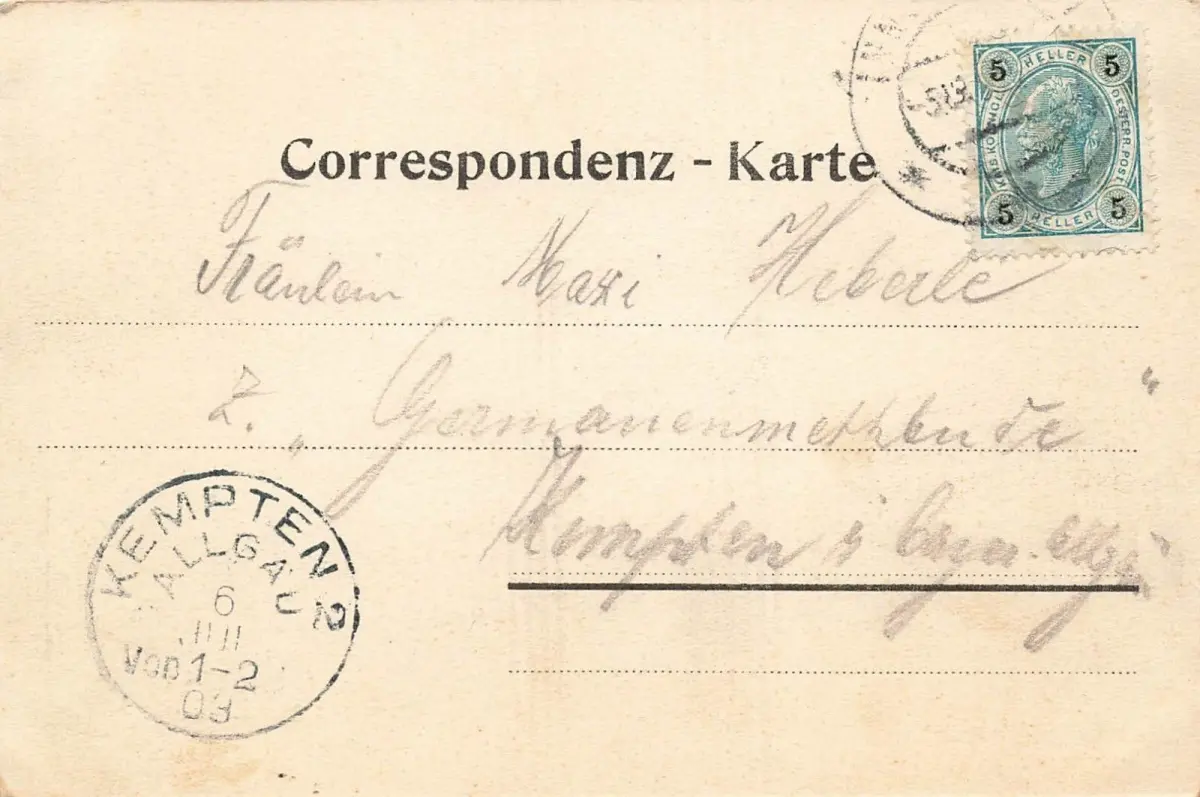 Correspondenz - Karte
INN
5
HELLER
5
KAIS. KÖN.
OESTERR. POST
5
HELLER
5
Fräulein Maxi Heberle
z. „Germanenmetzbude“
Kempten i bayr. Allgä
KEMPTEN 2
ALLGÄU
6
Vor 1-2
03